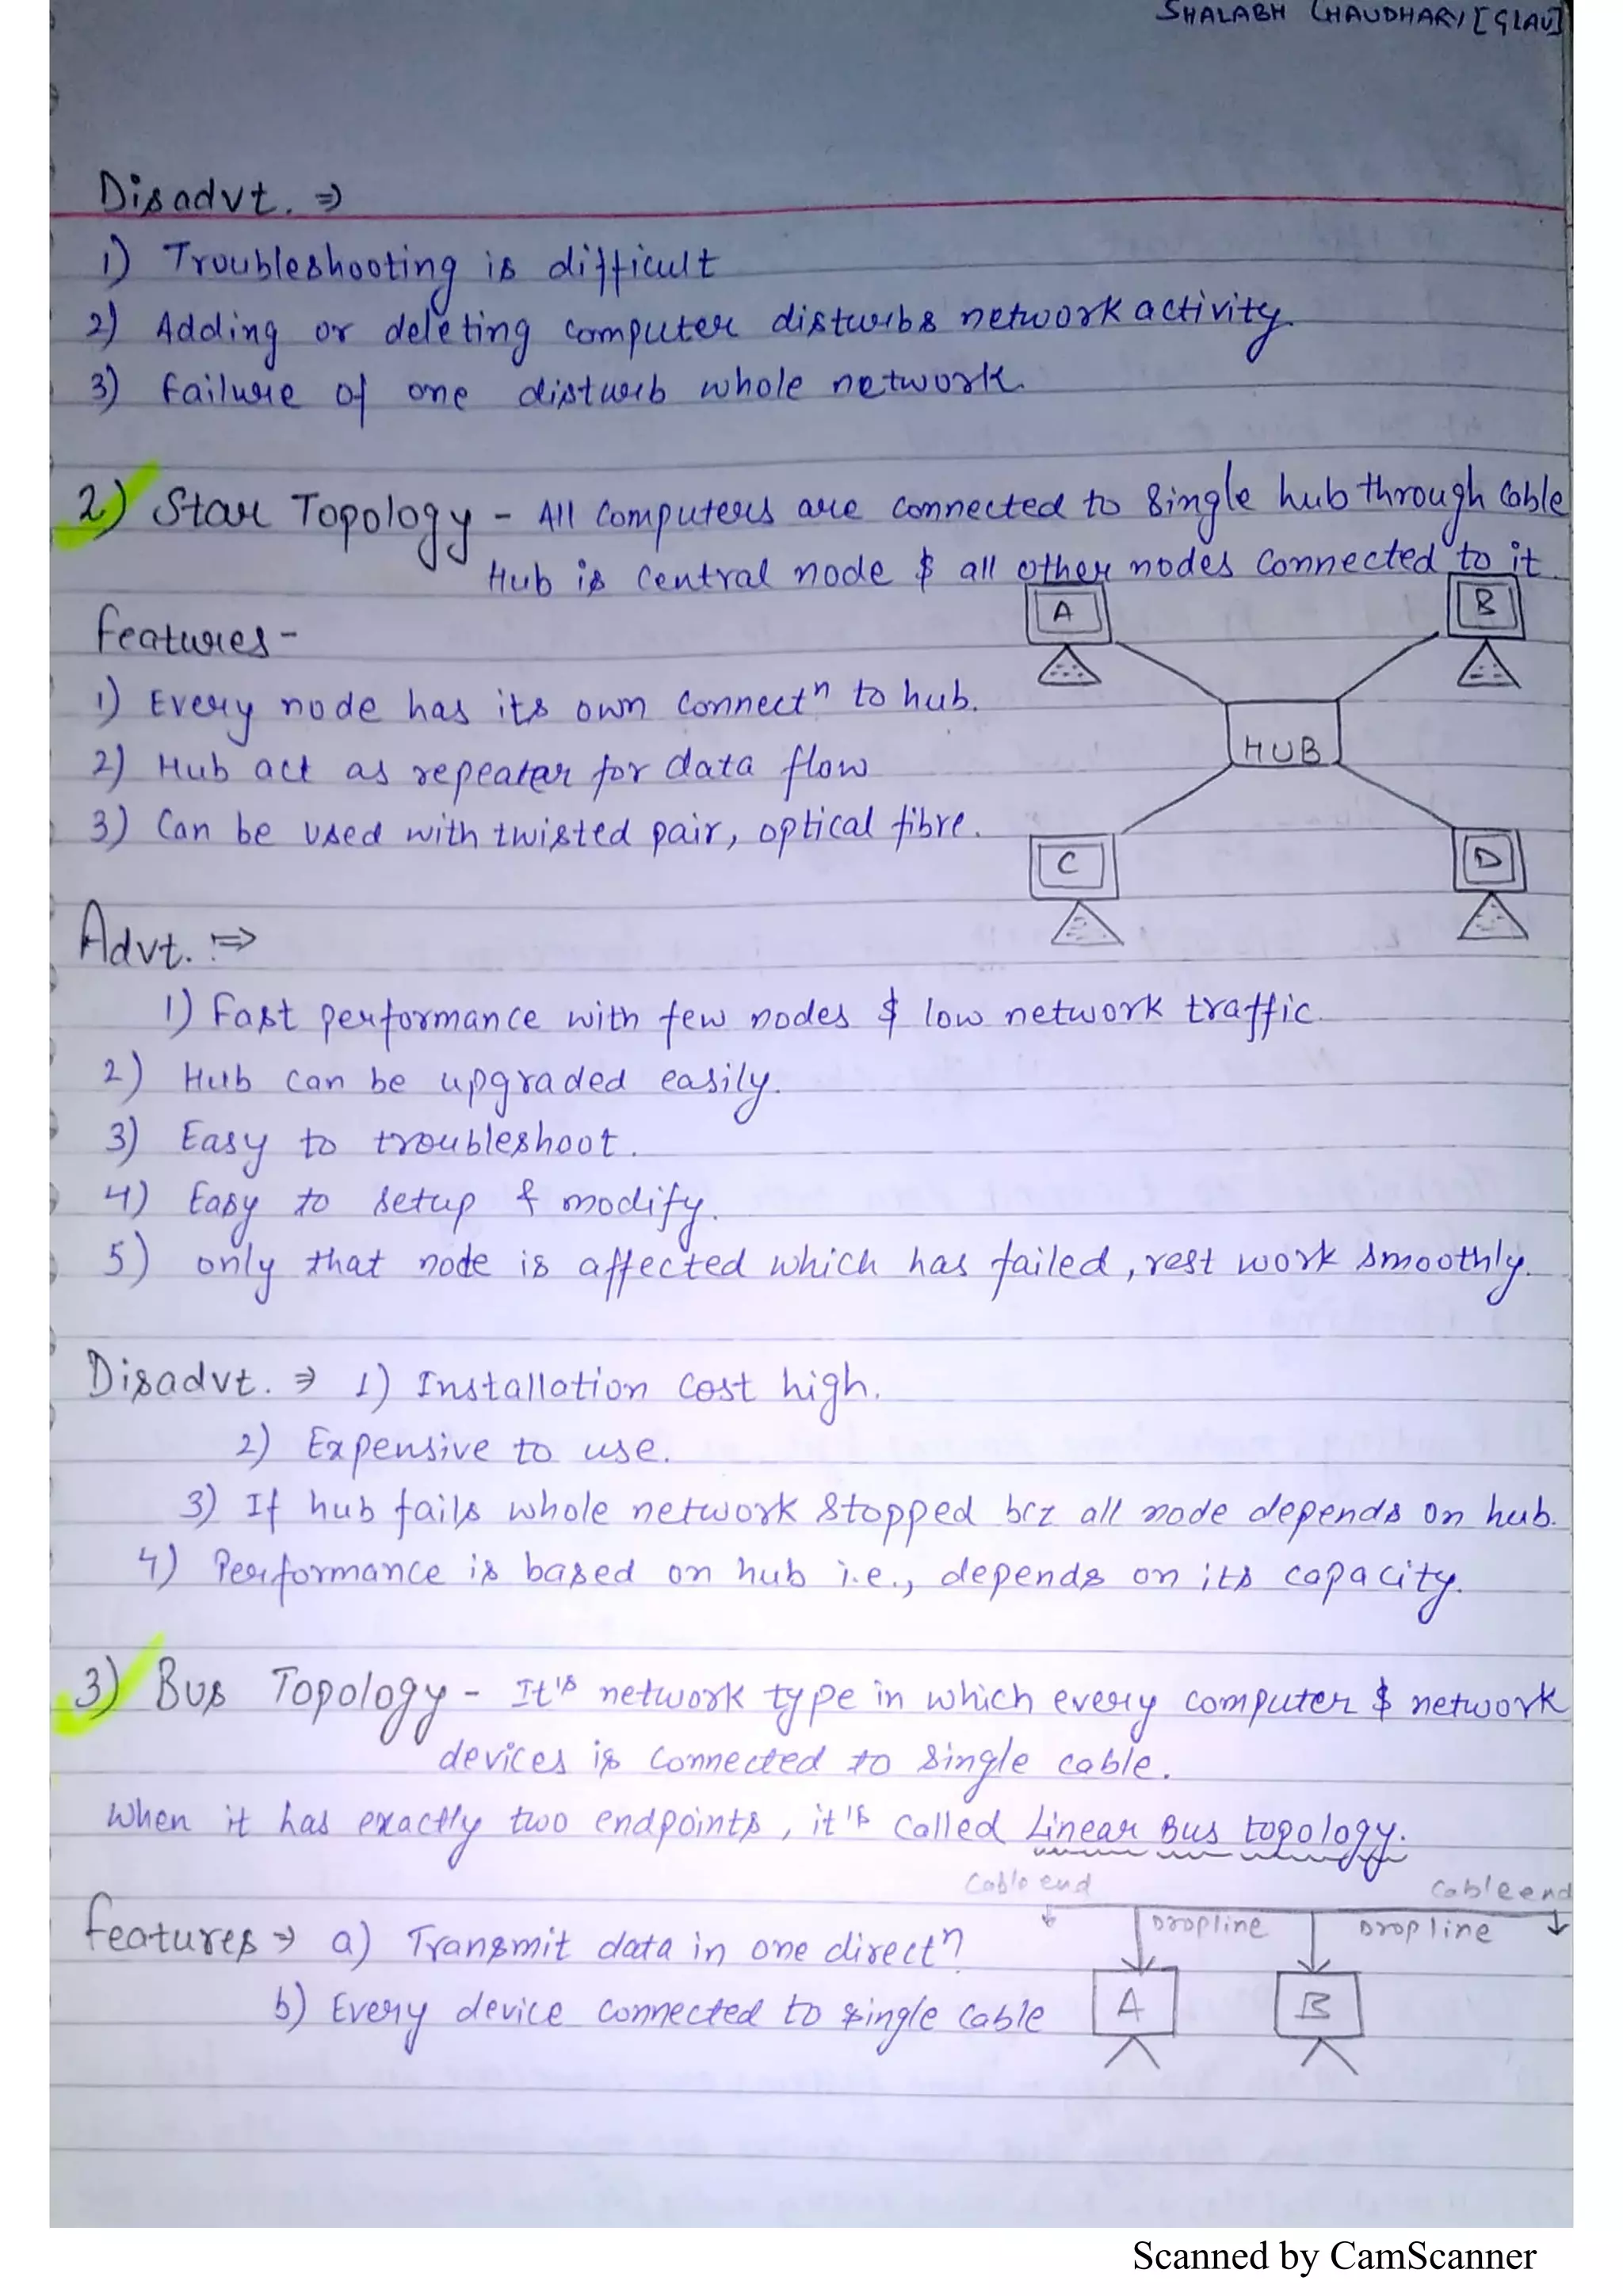 SHALABH CHAUDHARY [GLAU]
Disadvt. ⇒
1) Troubleshooting is difficult
2) Adding or deleting computer disturbs network activity.
3) Failure of one disturb whole network.
2) Star Topology - All Computers are connected to single hub through Cable
Hub is Central node & all other nodes connected to it.
A
B
Features-
1) Every node has its own connectⁿ to hub.
HUB
2) Hub act as repeater for data flow
3) Can be used with twisted pair, optical fibre.
C
D
Advt. ⇒
1) Fast performance with few nodes & low network traffic.
2) Hub can be upgraded easily.
3) Easy to troubleshoot.
4) Easy to setup & modify.
5) only that node is affected which has failed, rest work smoothly.
Disadvt. ⇒ 1) Installation cost high.
2) Expensive to use.
3) If hub fails whole network stopped bcz all node depends on hub.
4) Performance is based on hub i.e., depends on its capacity.
3) Bus Topology - It's network type in which every computer & network
devices is connected to single cable.
When it has exactly two endpoints, it's called Linear Bus topology.
Cable end
Cable end
Dropline
Dropline
Features ⇒ a) Transmit data in one directⁿ.
A
B
b) Every device connected to single cable
Scanned by CamScanner